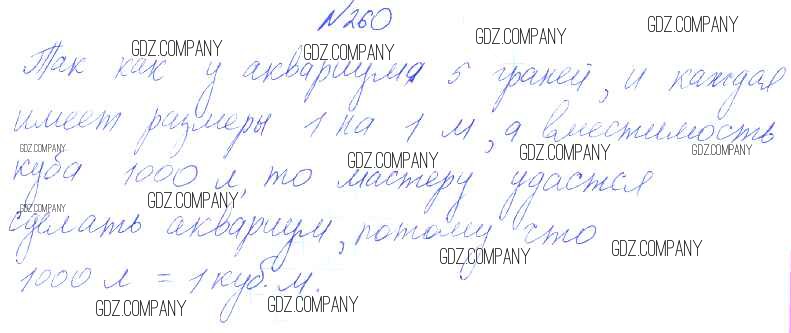 №260
Так как у аквариума 5 граней, и каждая
имеет размеры 1 на 1 м, а вместимость
куба 1000 л, то мастеру удастся
сделать аквариум, потому что
1000 л = 1 куб. м.
GDZ.COMPANY
GDZ.COMPANY
GDZ.COMPANY
GDZ.COMPANY
GDZ.COMPANY
GDZ.COMPANY
GDZ.COMPANY
GDZ.COMPANY
GDZ.COMPANY
GDZ.COMPANY
GDZ.COMPANY
GDZ.COMPANY
GDZ.COMPANY
GDZ.COMPANY